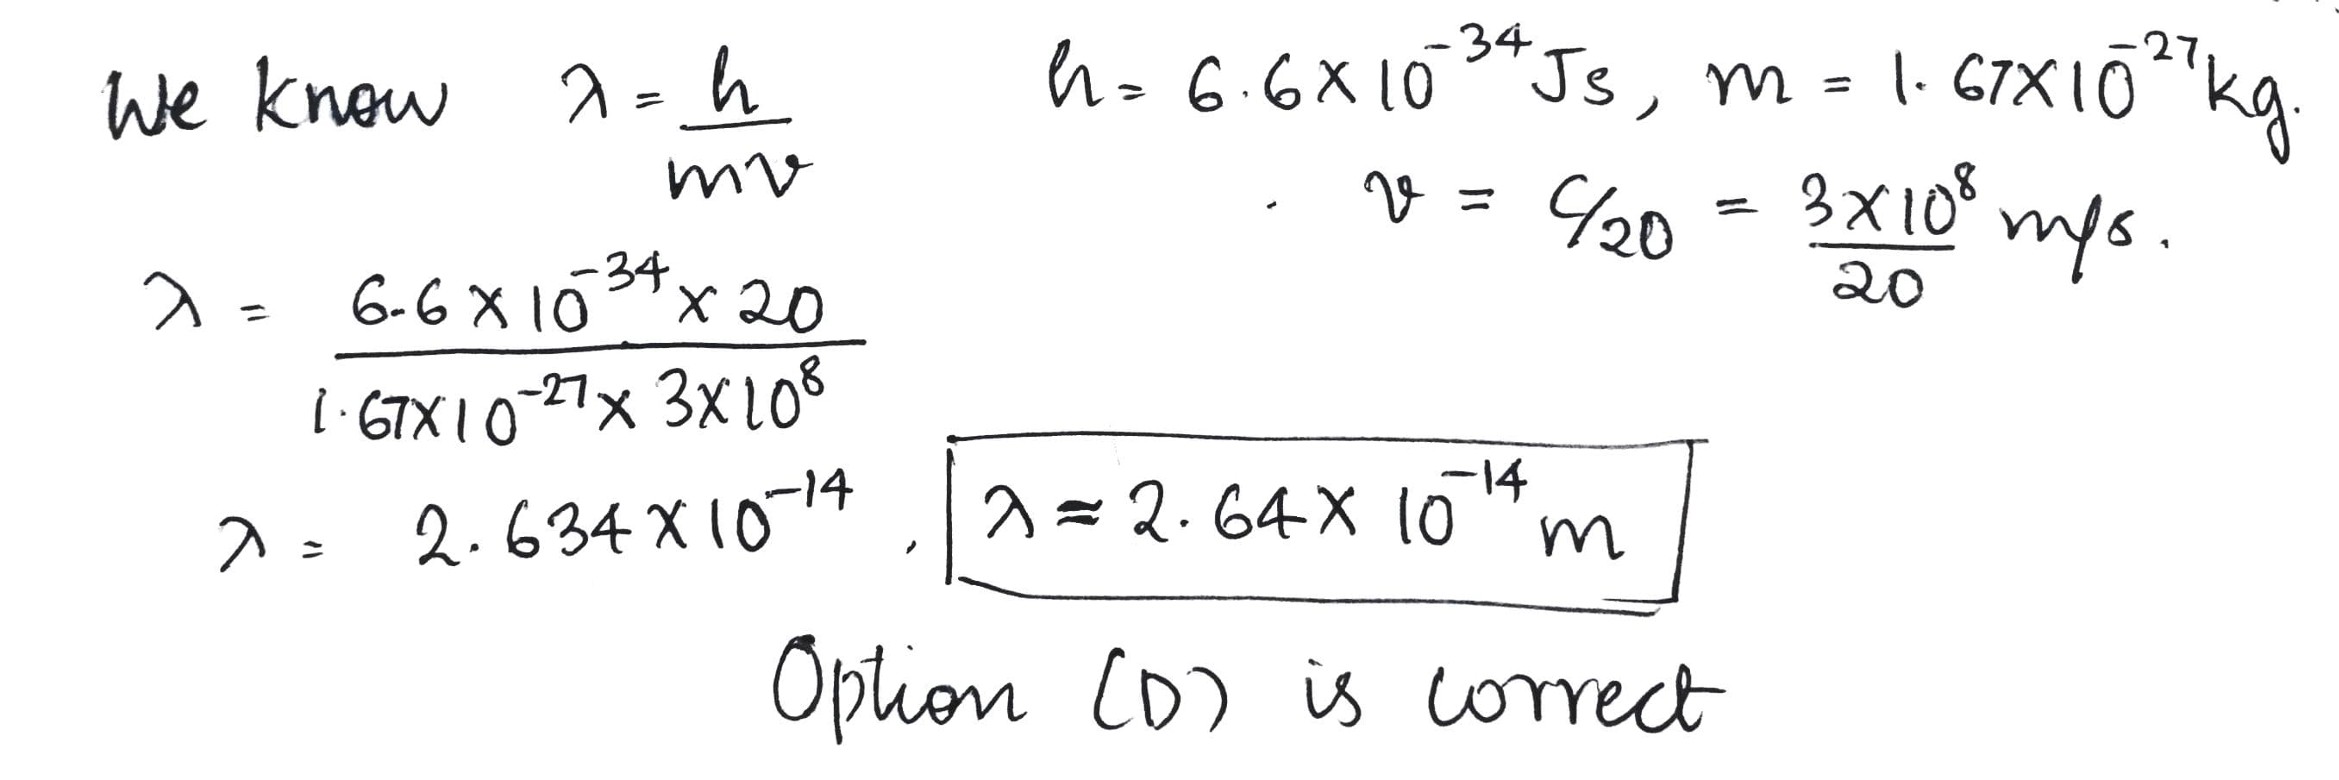 We know λ = h/mv    h = 6.6 × 10⁻³⁴ Js, m = 1.67×10⁻²⁷ kg.
v = c/20 = 3×10⁸/20 m/s.
λ = 6.6 × 10⁻³⁴ × 20 / 1.67×10⁻²⁷ × 3×10⁸
λ = 2.634 × 10⁻¹⁴, λ ≈ 2.64 × 10⁻¹⁴ m
Option (D) is correct